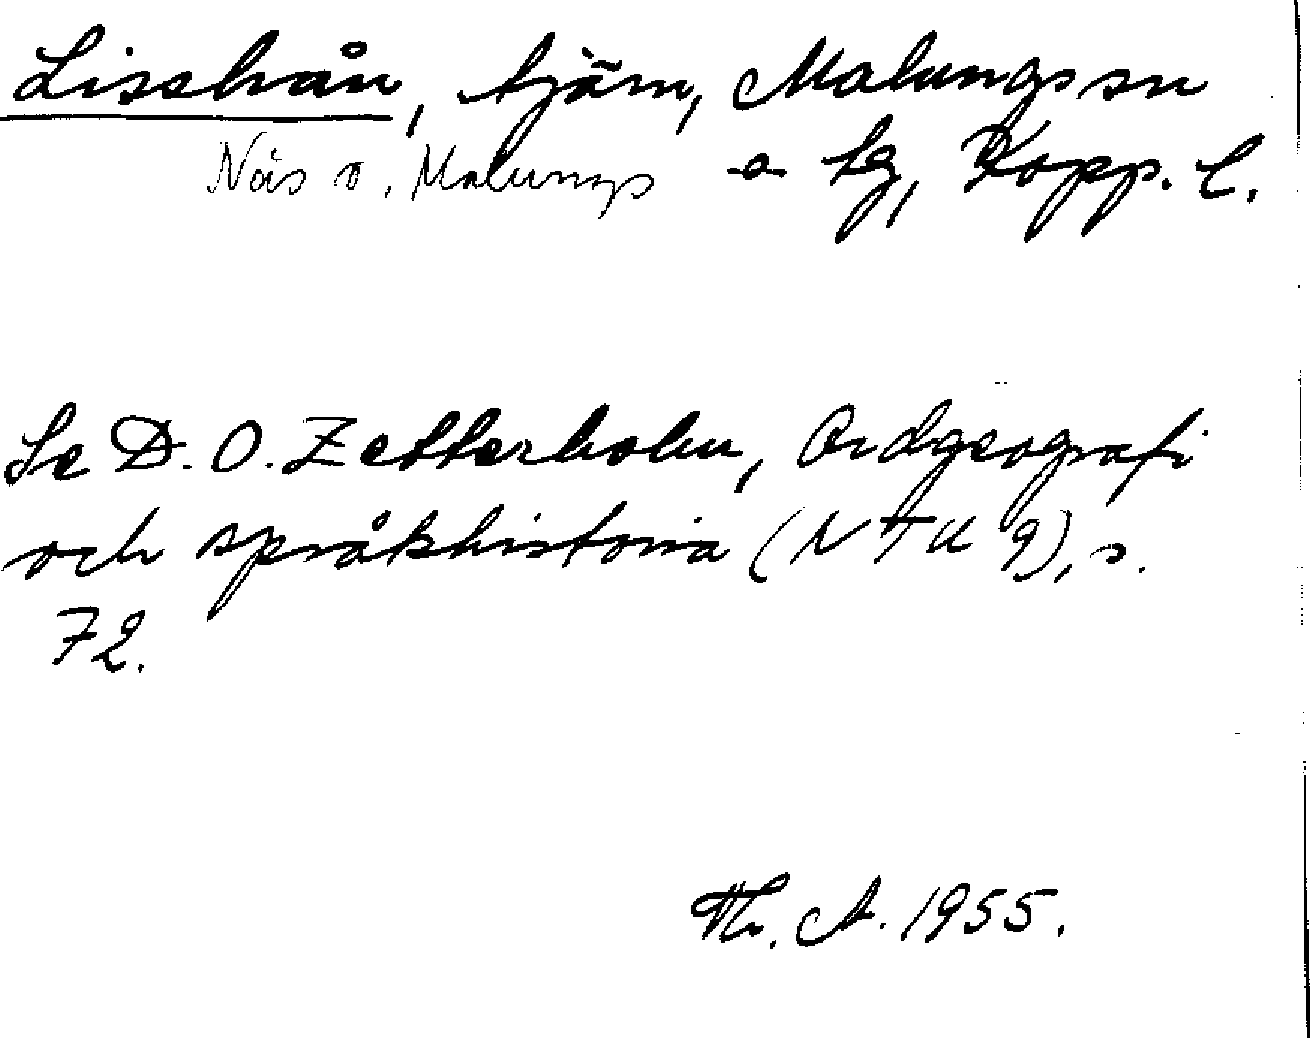 Lisshån, tjärn, Malungs sn
Näs o. Malungs o. tg, Kopp. l.
Se D. O. Zetterholm, Ordgeografi
och språkhistoria (NTU 9), s.
72.
Th. A. 1955.